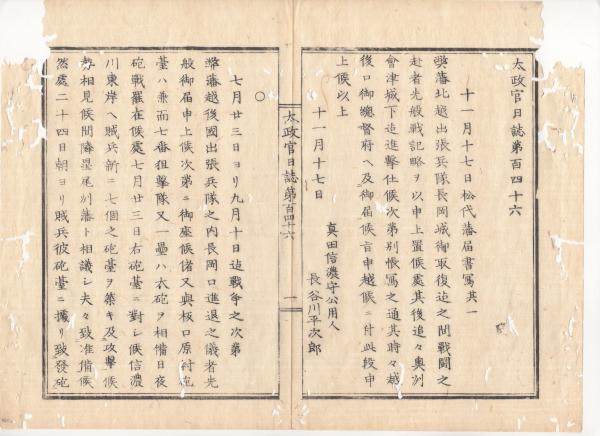 太政官日誌第百四十六
十一月十七日松代藩届書寫其一
弊藩北越出張兵隊長岡城御取復迄之間戰鬪之
赴者先般戰記略ヲ以申上置候處其後追々奥州
會津城下迄進撃仕候次第別帳寫之通其時々越
後口御總督府へ及御届候旨申越候ニ付此段申
上候以上
十一月十七日
真田信濃守公用人
長谷川平次郎
太政官日誌第百四十六
一
○
七月廿三日ヨリ九月十日迄戰爭之次第
弊藩越後國出張兵隊之内長岡口進退之儀者先
般御届申上候次第ニ御座候偖又與板口原村
臺ハ兼而七番狙撃隊又一壘ハ大砲ヲ相備日夜
砲戰罷在候處七月廿三日右砲臺ニ對シ候信濃
川東岸へ賊兵新ニ七個之砲臺ヲ築キ及攻撃候
勢相見候間陣墨尾州藩ト相議シ夫々致准備候
然處二十四日朝ヨリ賊兵彼砲臺ニ據リ致發砲